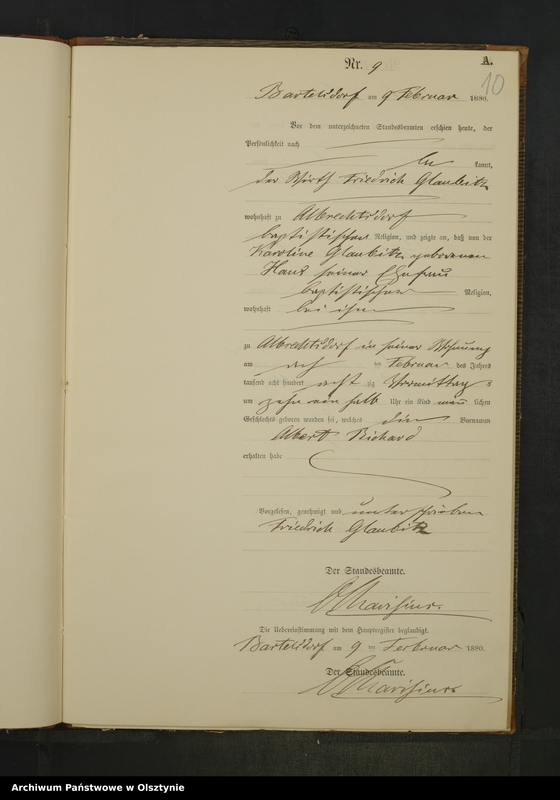 Nr. 9
A.
10
Bartelsdorf am 9 Februar 1880.
Vor dem unterzeichneten Standesbeamten erschien heute, der
Persönlichkeit nach
kannt,
der Wirth Friedrich Glaubitz
wohnhaft zu Albrechtsdorf
baptistischer Religion, und zeigte an, daß von der
Karoline Glaubitz geborenen
Hanz seiner Ehefrau
baptistischer Religion,
wohnhaft bei ihm
zu Albrechtsdorf in seiner Wohnung
am Februar des Jahres
tausend acht hundert achtzig Vormittag s
um zehn ein halb Uhr ein Kind männlichen
Geschlechts geboren worden sei, welches die Vornamen
Albert Richard
erhalten habe
Vorgelesen, genehmigt und unterschrieben
Friedrich Glaubitz
Der Standesbeamte.
Die Uebereinstimmung mit dem Hauptregister beglaubigt.
Bartelsdorf am 9 ten Februar 1880.
Der Standesbeamte.
Archiwum Państwowe w Olsztynie